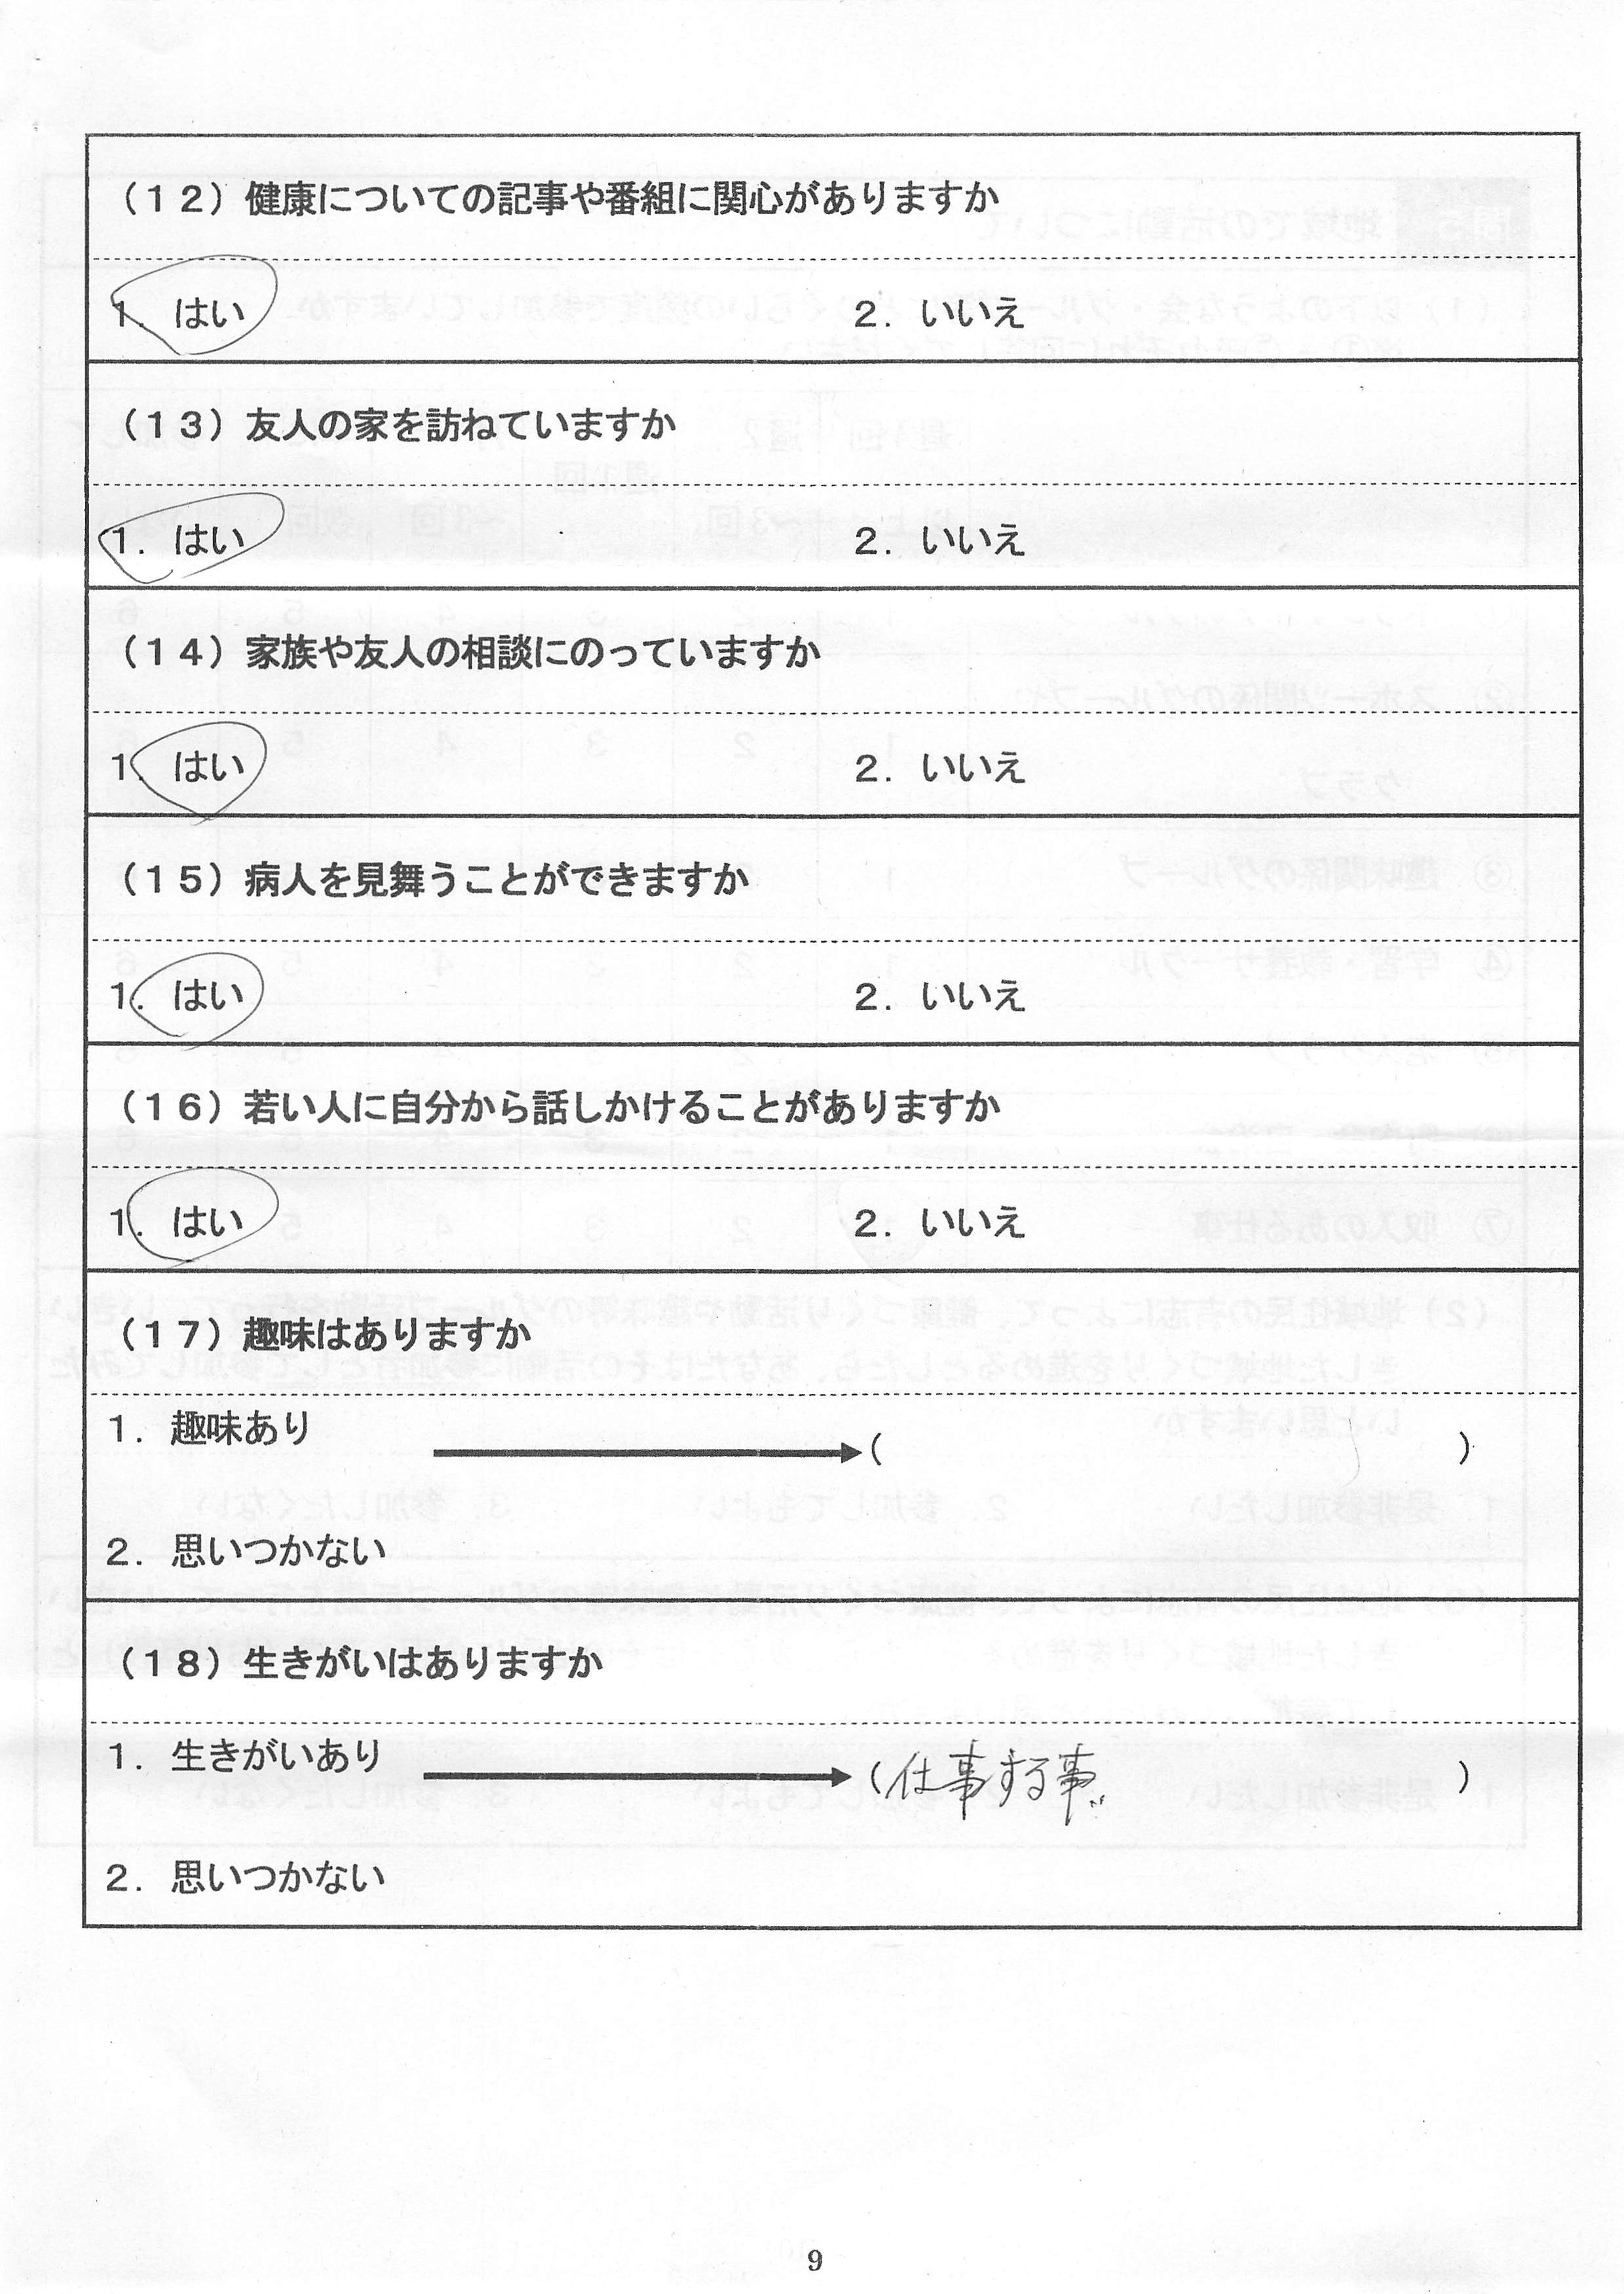 （１２）健康についての記事や番組に関心がありますか
１．はい　２．いいえ
（１３）友人の家を訪ねていますか
１．はい　２．いいえ
（１４）家族や友人の相談にのっていますか
１．はい　２．いいえ
（１５）病人を見舞うことができますか
１．はい　２．いいえ
（１６）若い人に自分から話しかけることがありますか
１．はい　２．いいえ
（１７）趣味はありますか
１．趣味あり　（　　　）
２．思いつかない
（１８）生きがいはありますか
１．生きがいあり　（仕事する事。）
２．思いつかない
9